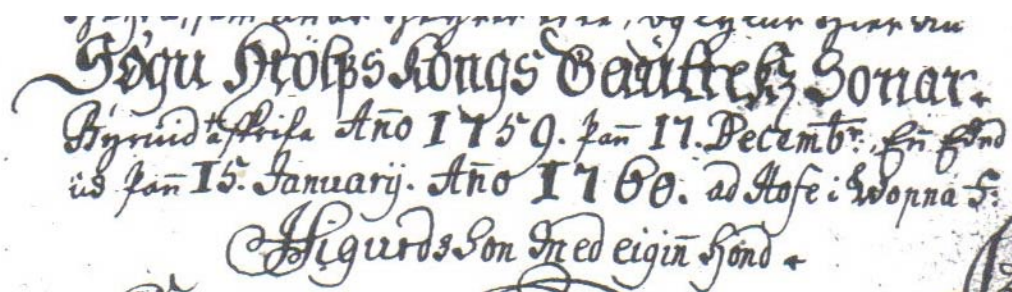 Sögu Hrölfs kongs Gautreks Sonar.
Byriud afskrifa Año 1759. þañ 17. Decembr. Eñ End
ud þañ 15. January. Año 1760. ad Hofe i Wopna f:
Sigurdsson med eigiñ hönd.